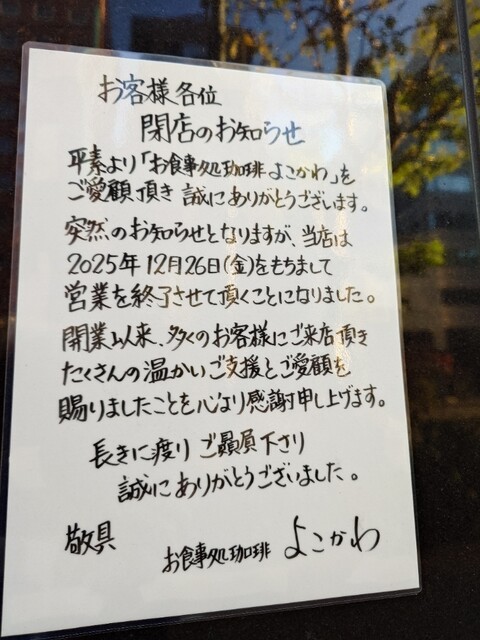 お客様各位
閉店のお知らせ
平素より「お食事処珈琲よこかわ」を
ご愛顧頂き 誠にありがとうございます。
突然のお知らせとなりますが、当店は
2025年12月26日(金)をもちまして
営業を終了させて頂くことになりました。
開業以来、多くのお客様にご来店頂き
たくさんの温かいご支援とご愛顧を
賜りましたことを心より感謝申し上げます。
長きに渡り ご贔屓下さり
誠にありがとうございました。
敬具
お食事処珈琲 よこかわ